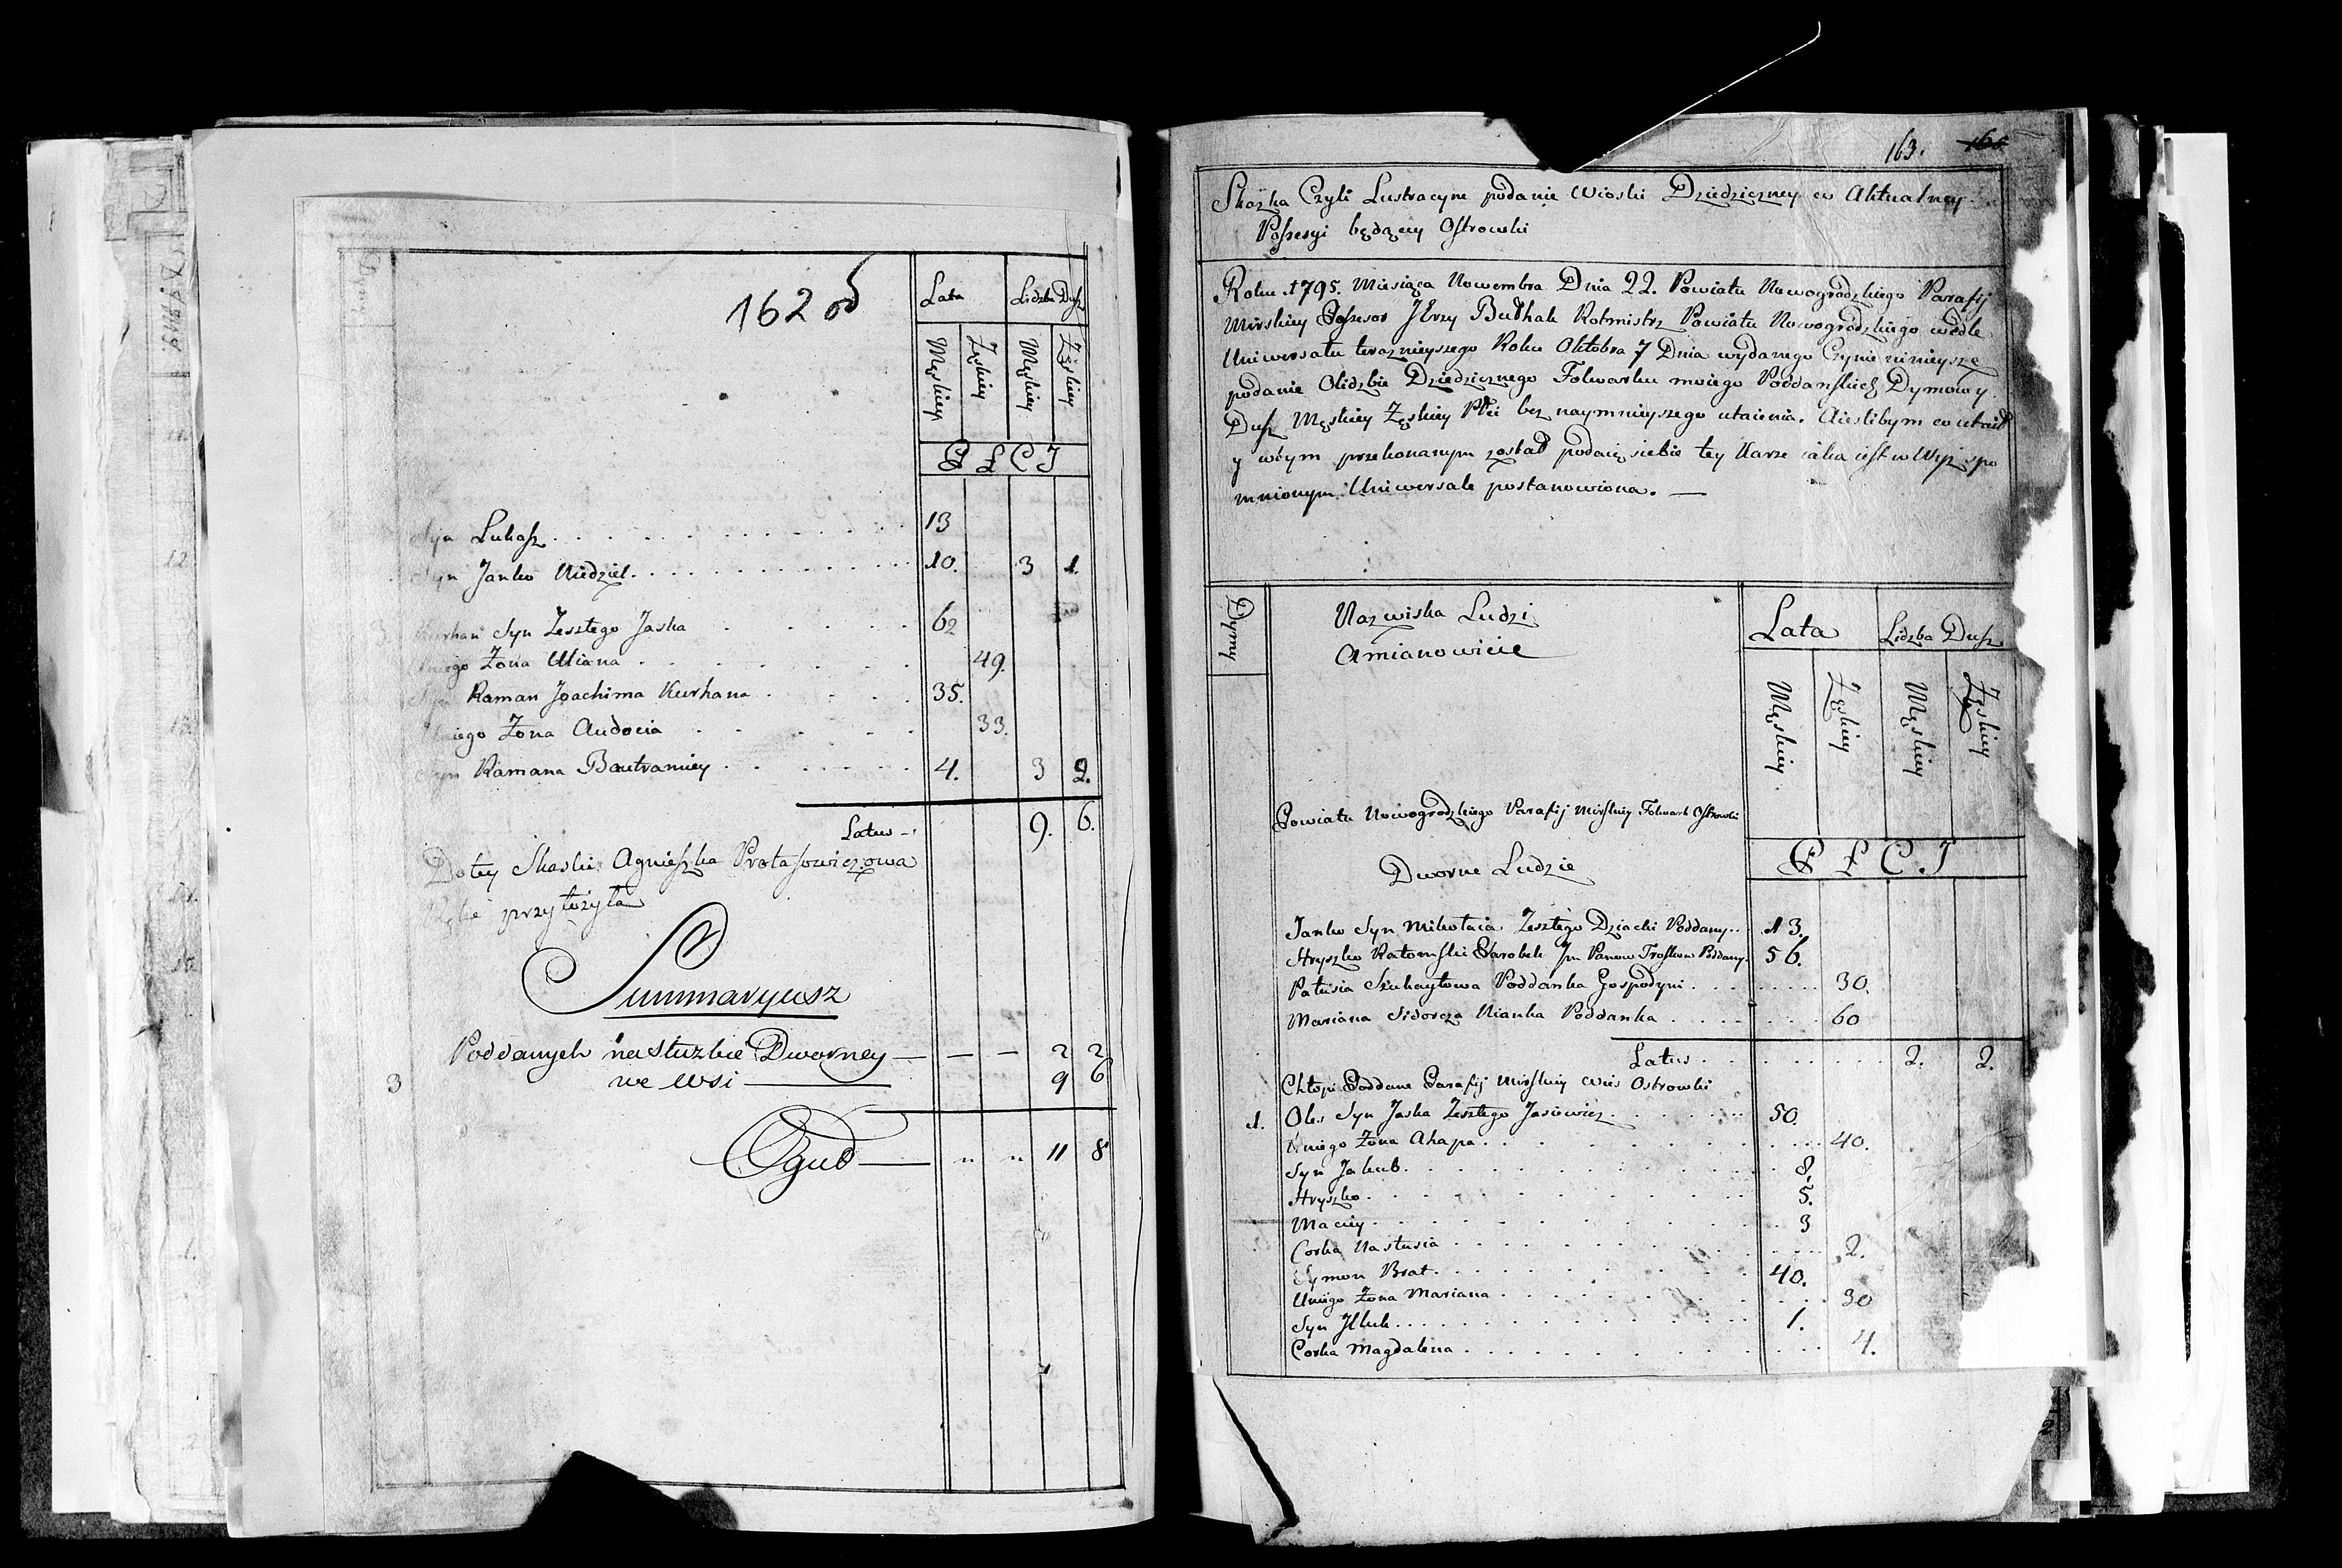 162 об
Lata Lidzba Dusz
Męskiey Żęskiey Męskiey Żęskiey
P Ł C I
Syn Łukasz 13
Syn Janko Niedziel. 10. 3 1.
Kurhan Syn Zeszłego Jaska 62
Uniego Żona Uliana 49.
Syn Raman Joachima Kurhana 35.
Uniego Żona Audocia 33.
Syn Ramana Bautramiey 4. 3 2.
Latus 9. 6.
Do tey Skaski Agnieszka Protasowiczowa
Rękę przyłożyła
Summaryusz
Poddanych na Służbie Dworney — — — 2 2
3 we Wsi — 9 6
Oguł — " " 11 8
163. 165
Skazka Czyli Lustracyne podanie Wioski Dziedziczney w Aktualney
Possesyi będącey Ostrowki
Roku 1795. Miesiąca Nowembra Dnia 22. Powiatu Nowogrodzkiego Parafij
Mirskiey Possesor JErzy Bułhak Rotmistrz Powiatu Nowogrodzkiego wedle
Uniwersału teraznieyszego Roku Oktobra 7 Dnia wydanego Czynie ninieysze
podanie Olidzbie Dziedzicznego Folwarku moiego Poddanskich Dymow y
Dusz Męskiey Żęskiey Płci bez naymnieyszego utaienia. Aieslibym co utaił
y wtym przekonanym został podaię siebie tey Karze iaka iest w Wyż spo
mnionym Uniwersale postanowiona. —
Dymy
Nazwiska Ludzi
Amianowicie
Lata Lidzba Dusz
Męskiey Żęskiey Męskiey Żęskiey
Powiatu Nowogrodzkiego Parafij Mirskiey Folwark Ostrowki
P Ł C I
Dworne Ludzie
Janko Syn Mikołaia Zeszłego Dziacki Poddany 13.
Hryszko Ratomski Parobek Jm Panow Poddany 56.
Patusia Poddanka Gospodyni 30.
Mariana Sidorcza Nianka Poddanka 60
Latus 2. 2.
Chłopi Poddane Parafij Mirskiey Wies Ostrowki
1. Oles Syn Jaska Zeszłego Jasiewicz 50.
Uniego Żona Ahapa 40.
Syn Jakub 8.
Hryszko 5.
Maciey 3
Corka Nastusia 2.
Symon Brat 40.
Uniego Żona Mariana 30
Syn Illuk 1.
Corka Magdalena 4.